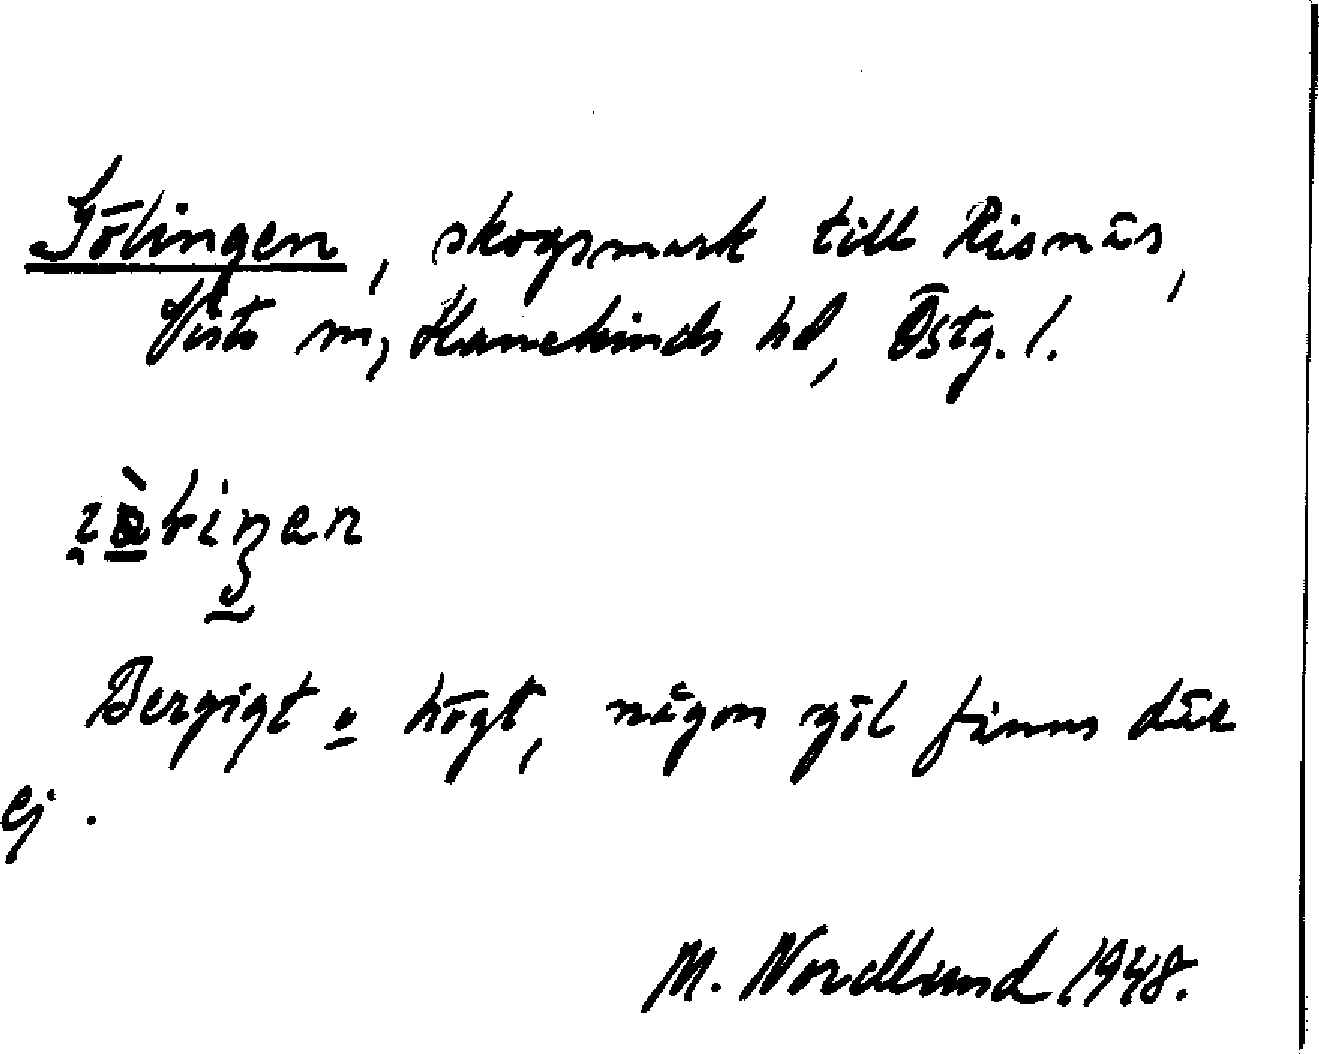 Gölingen, skogsmark till Risnäs,
Vists sn, Hanekinds hd, Östg. l.
Bergigt o högt, någon göl finns där
ej.
M. Nordlund 1948.